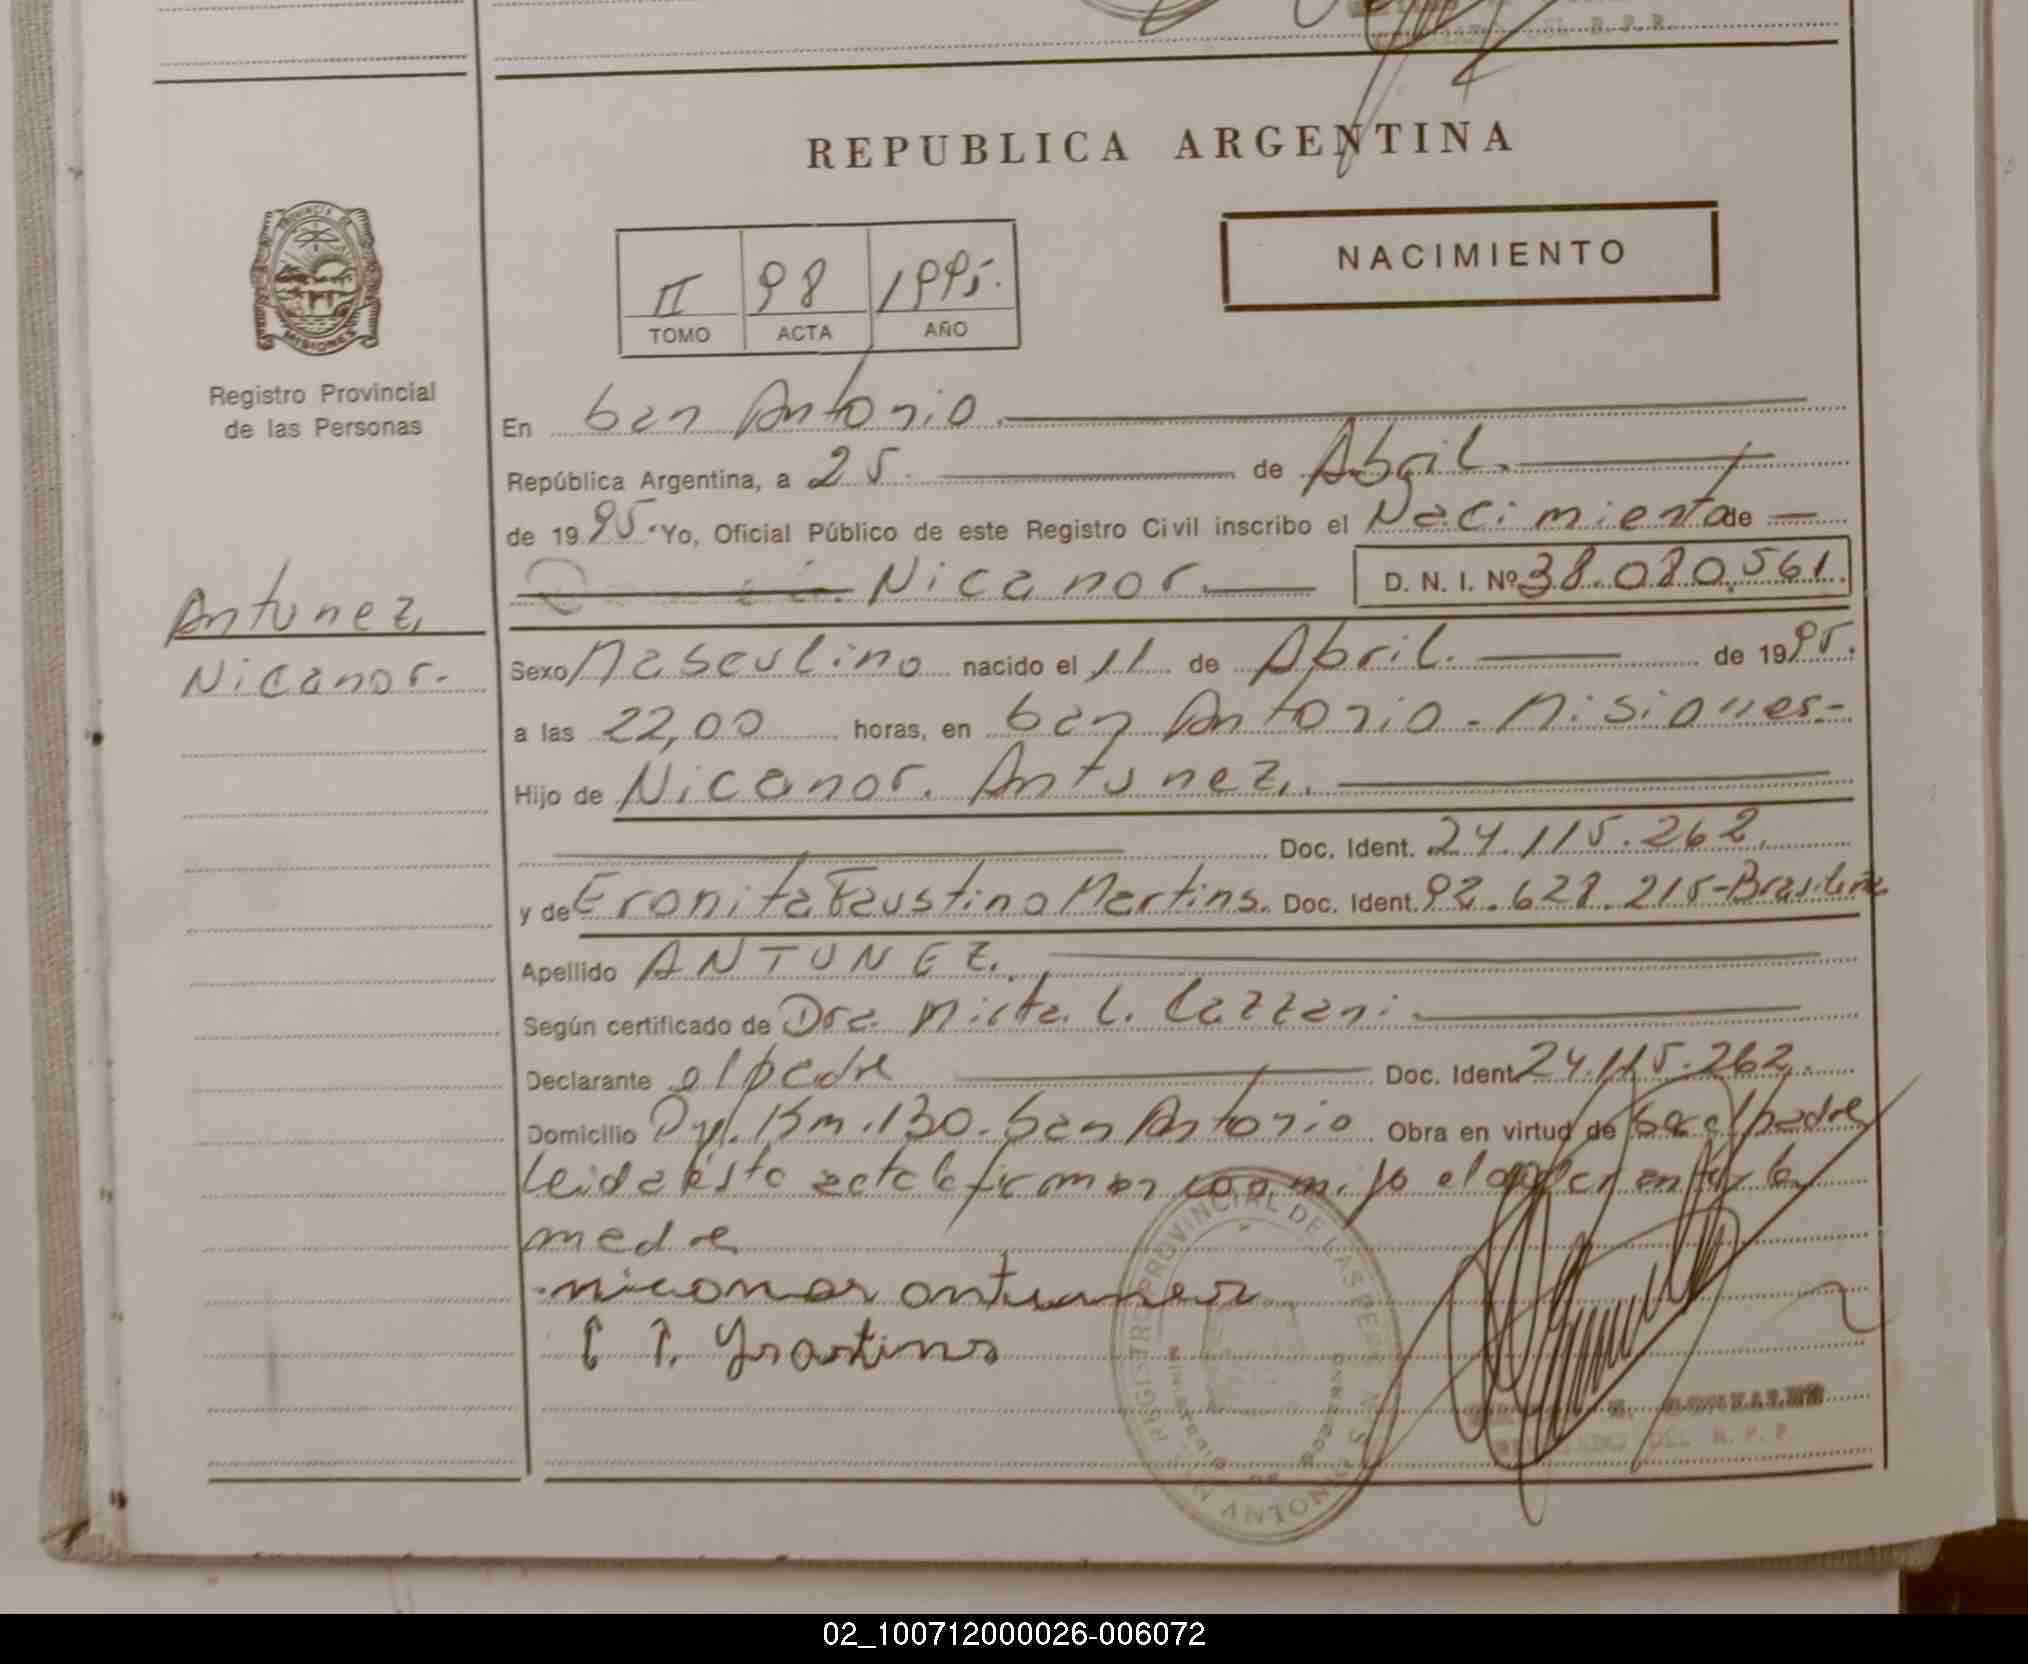 REPUBLICA ARGENTINA
PROVINCIA DE
MISIONES
NACIMIENTO
II 98 1995.
TOMO ACTA AÑO
Registro Provincial
de las Personas
Antunez,
Nicanor.
En San Antonio.
República Argentina, a 25. de Abril.
de 1995. Yo, Oficial Público de este Registro Civil inscribo el Nacimiento de
Nicanor. D. N. I. Nº 38.080.561.
Sexo Masculino nacido el 11 de Abril. de 1995.
a las 22,00 horas, en San Antonio - Misiones.-
Hijo de Nicanor. Antunez,.
Doc. Ident. 24.115.262.
y de Eronita Faustino Martins. Doc. Ident. 92.628.215-Brasileña
Apellido ANTUNEZ.
Según certificado de Dra. Mirta. L. Cazzani.
Declarante el padre Doc. Ident. 24.115.262.
Domicilio Km. 130. San Antonio Obra en virtud de Ser el padre
Leida esta acta la firman conmigo el y la
madre
nicanor antunez
REGISTRO PROVINCIAL DE LAS PERSONAS
MINISTERIO DE GOBIERNO
SAN ANTONIO MNES
GONZALEZ
DEL R. P. P.
02_100712000026-006072